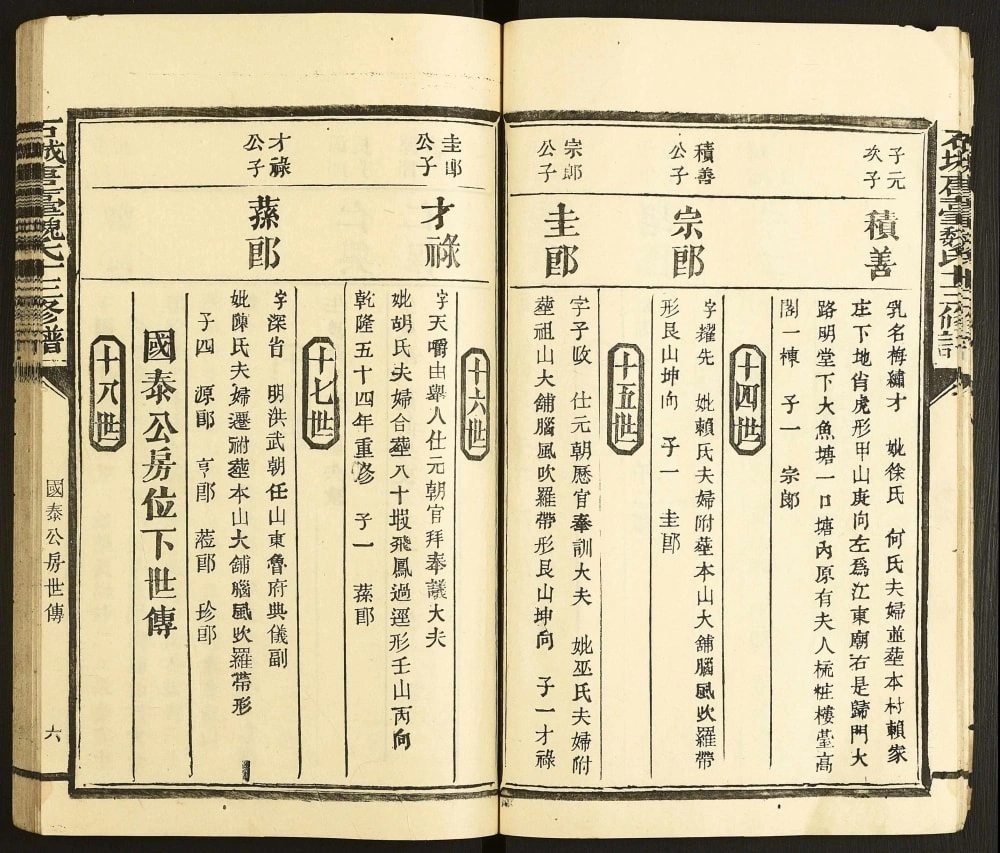 子元
次子
積善
乳名梅繡才　妣徐氏　何氏夫婦並塟本村賴家
庄下地肖虎形甲山庚向左爲江東廟右是歸門大
路明堂下大魚塘一口塘內原有夫人梳粧樓臺高
閣一棟　子一　宗郞
十四世
積善
公子
宗郞
字擢先　妣賴氏夫婦附塟本山大舖腦風吹羅帶
形艮山坤向　子一　圭郞
十五世
宗郞
公子
圭郞
字子政　仕元朝歷官奉訓大夫　妣巫氏夫婦附
塟祖山大舖腦風吹羅帶形艮山坤向　子一才祿
十六世
圭郞
公子
才祿
字天嚼由舉人仕元朝官拜奉議大夫
妣胡氏夫婦合塟八十塅飛鳳過逕形壬山丙向
乾隆五十四年重修　子一　蓀郞
十七世
才祿
公子
蓀郞
字深省　明洪武朝任山東魯府典儀副
妣陳氏夫婦遷祔塟本山大舖腦風吹羅帶形
子四　源郞　亨郞　蒞郞　珍郞
國泰公房位下世傳
十八世
石城唐臺魏氏十三修譜
國泰公房世傳
六